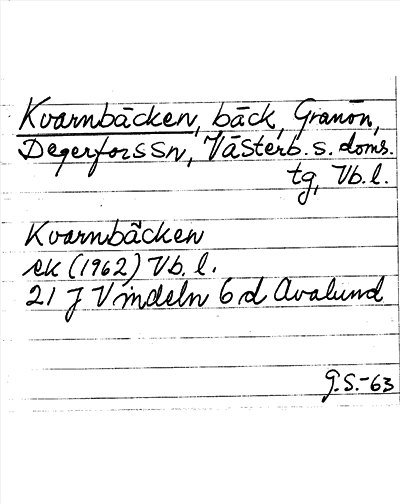 Kvarnbäcken, bäck, Granön,
Degerforssn, Västerb. s. doms.
tg, Vb. l.
Kvarnbäcken
ek (1962) Vb. l.
21 J Vindeln 6 d Avalund
G.S.-63